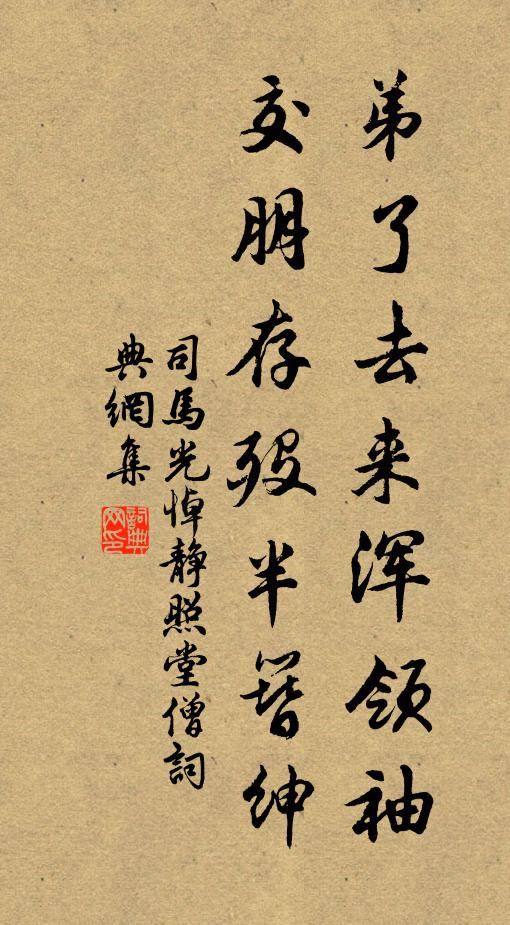 弟了去来浑领袖
交朋存殁半簪绅
司馬光悼静照堂僧詞
典網集
詞典網印